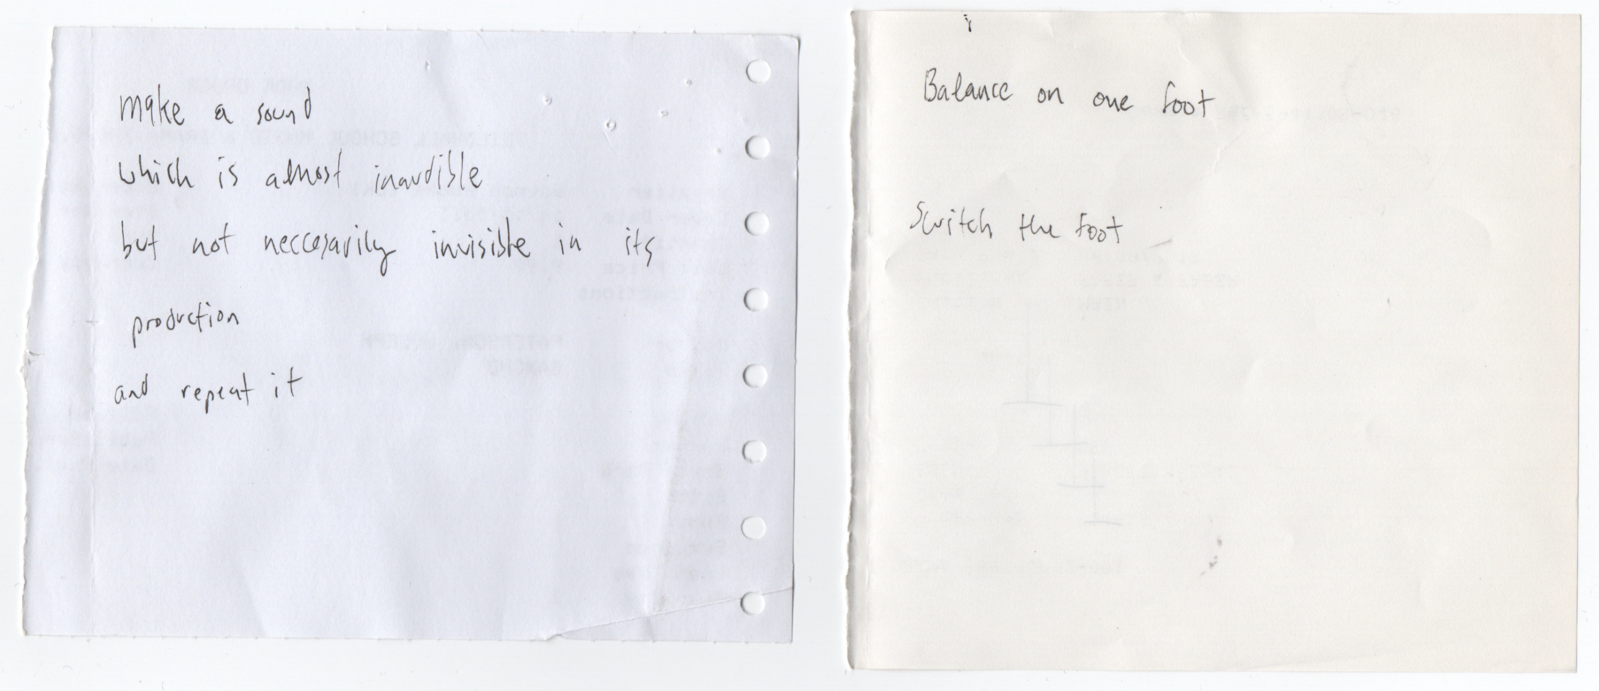 make a sound
which is almost inaudible
but not neccesarily invisible in its
production
and repeat it
Balance on one foot
Switch the foot